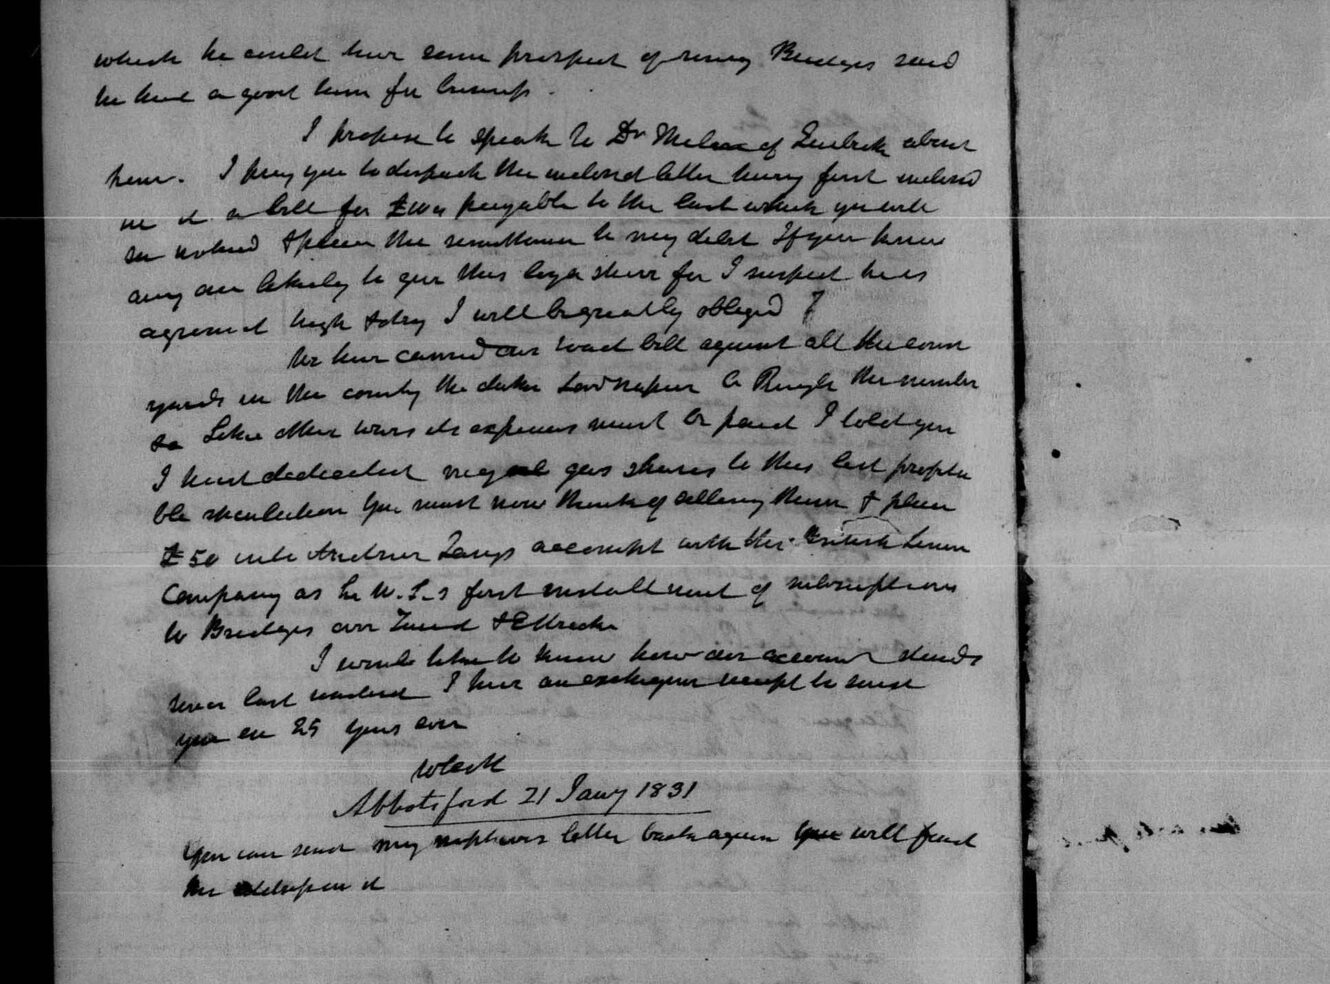 which he could have some prospect of rising Bridges said
he had a good turn for business.
I propose to speak to Dr of about
him. I pray you to dispatch the inclosed letter having first inclosed
in it a bill for £100 payable to the which you will
see noted & place the remittance to my debt If you know
any one likely to give this a for I suspect he is
aground high & dry I will be greatly obliged
We have carried our road bill against all the
in the county the duke Lord Napier the member
&c Like other wars its expences must be paid I told you
I had dedicated my gas shares to this last profita
ble speculation You must now think of selling them & place
£50 into Andrew Langs account with the British Linen
Company as Sir W. S-s first installment of subscriptions
to Bridges over Tweed & Ettricke
I would like to know how our account stands
since last I have an exchequer receipt to send
you on 25 yours ever
W Scott
Abbotsford 21 Jany 1831
You can send my nephews letter back again You will find
his in it